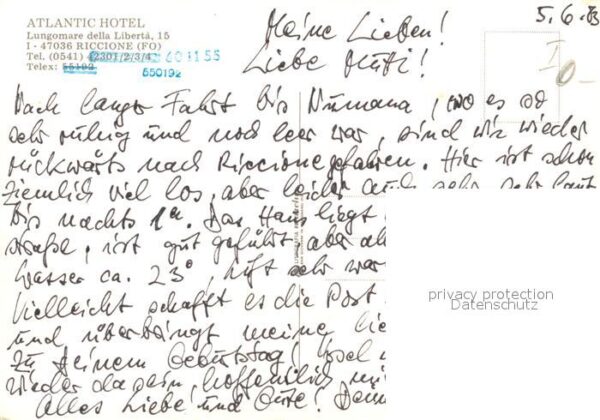 ATLANTIC HOTEL
Lungomare della Libertà, 15
I - 47036 RICCIONE (FO)
Tel. (0541) 42301/2/3/4
601155
Telex: 55192
550192
5.6.83
Meine Lieben!
Liebe Muti!
Nach langer Fahrt bis Numana, wo es so
sehr ruhig und noch leer war, sind wir wieder
rückwärts nach Riccione gefahren. Hier ist schon
ziemlich viel los, aber leider auch sehr, sehr laut
bis nachts 1h. Das Haus liegt
straße, ist gut geführt aber
Wasser ca. 23°, Luft sehr war
Vielleicht schafft es die Post
und überbringt meine lie
zu Deinem Geburtstag!
wieder daheim, hoffentlich
Alles Liebe und Gute!
privacy protection
Datenschutz